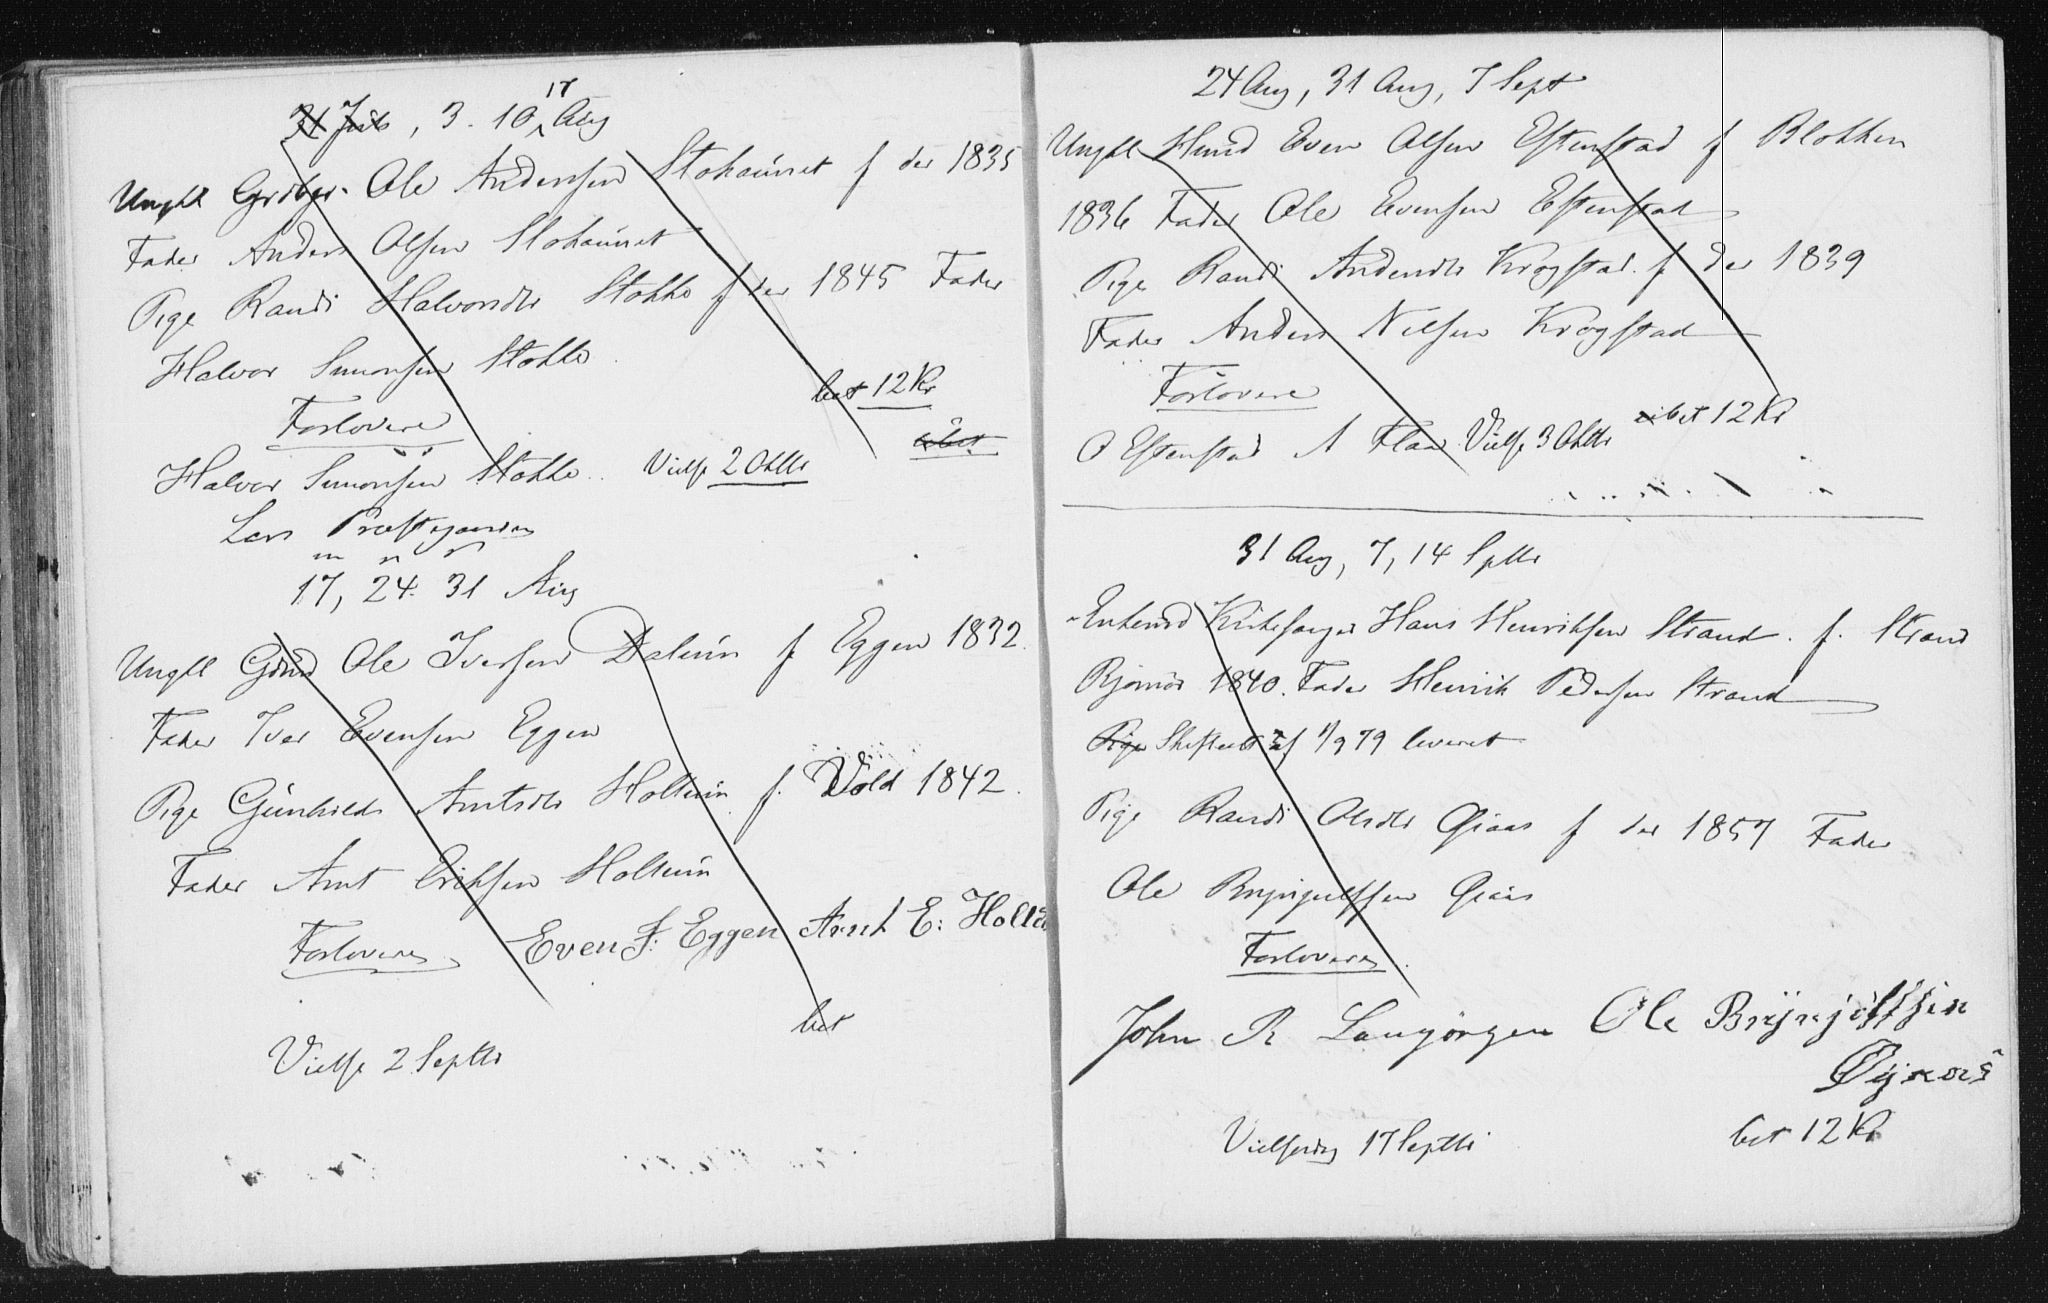 31 Juli, 3. 10 17 Aug
Ungkl Grdbr. Ole Andersen Stohaunet f der 1835
Fader Anders Olsen Stohaunet
Pige Randi Halvorsdtr Stokke f der 1845 Fader
Halvor Simonsen Stokke
bet 12 Kr
Forlovere
Halvor Simonsen Stokke. Vielse 2 Oktbr
Lars Præstegaarden
17, 24. 31 Aug
Ungkl Gmd Ole Iversen Daleün f Eggen 1832.
Fader Iver Evensen Eggen
Pige Günhild Arntsdtr Holteün f. Vold 1842.
Fader Arnt Eriksen Holteün
Forlovere Even J: Eggen Arnt E: Holte
bet
Vielse 2 Septbr
24 Aug, 31 Aug, 7 Sept
Ungkl Hmd Even Olsen Estenstad f Blokken
1836 Fader Ole Evensen Estenstad
Pige Randi Andersdtr Krogstad. f der 1839
Fader Anders Nilsen Krogstad
Forlovere
O Estenstad A Flaa Vielse 3 Oktbr bet 12 Kr
31 Aug, 7, 14 Septbr
Enkemd Kirkesanger Hans Henriksen Strand. f. Strand
Bjørnør 1840. Fader Henrik Pedersen Strand
Pige Skifteatt af 1/9 79 leveret
Pige Randi Olsdtr Øiaas f der 1857 Fader
Ole Brynjulfsen Øiaas
Forlovere
John R Langørgen Ole Brÿnjolfsen
Øyaas
Vielsesdag 17 Septbr
bet 12 Kr